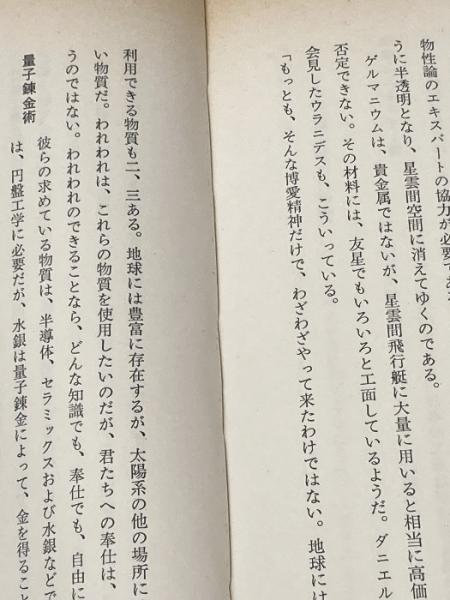 物性論のエキスパートの協力が必要であ
うに半透明となり、星雲間空間に消えてゆくのである。
ゲルマニウムは、貴金属ではないが、星雲間飛行艇に大量に用いると相当に高価
否定できない。その材料には、友星でもいろいろと工面しているようだ。ダニエル
会見したウラニデスも、こういっている。
「もっとも、そんな博愛精神だけで、わざわざやって来たわけではない。地球には
利用できる物質も二、三ある。地球には豊富に存在するが、太陽系の他の場所に
い物質だ。われわれは、これらの物質を使用したいのだが、君たちへの奉仕は、
うのではない。われわれのできることなら、どんな知識でも、奉仕でも、自由に
量子錬金術
彼らの求めている物質は、半導体、セラミックスおよび水銀などで
は、円盤工学に必要だが、水銀は量子錬金によって、金を得ること